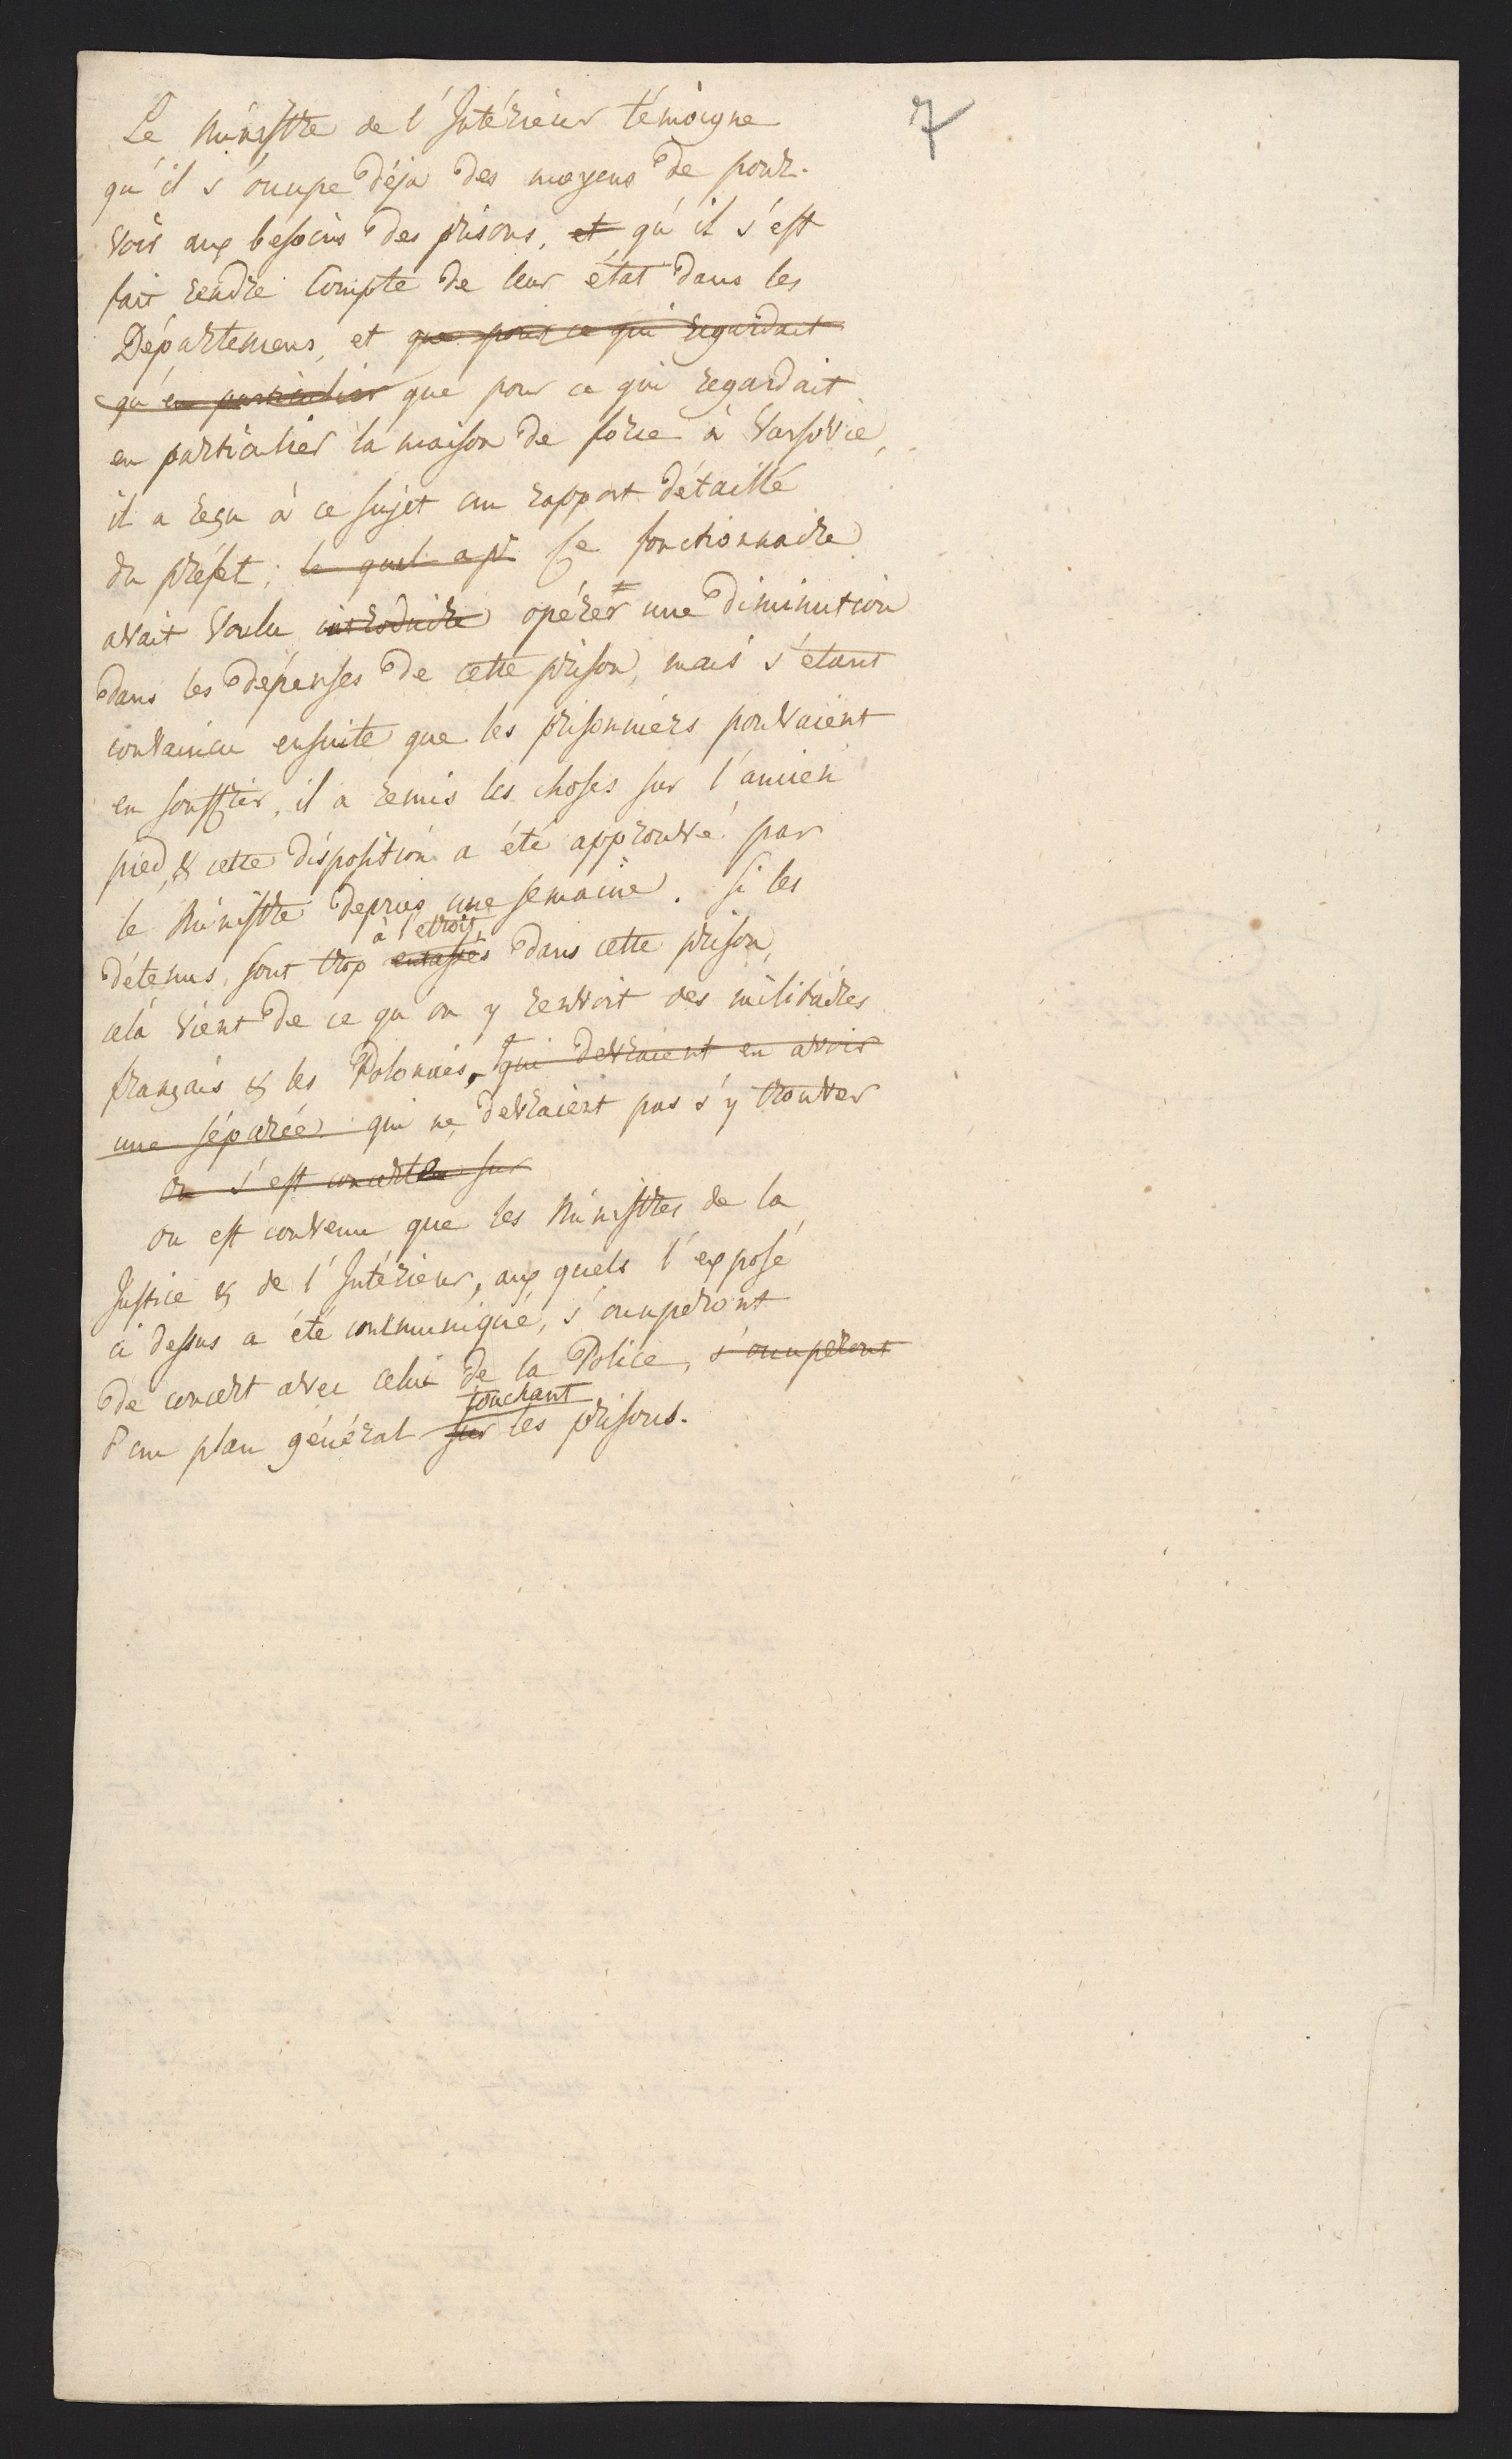 7
Le Ministre de l'Intérieur témoigne
qu'il s'occupe déja des moyens de pour-
voir aux besoins des prisons, et qu'il s'est
fait rendre Compte de leur état dans les
Départemens, et que pour ce qui regardait
qu'en particulier que pour ce qui regardait
en particulier la maison de force à Varsovie,
il a reçu à ce sujet un rapport détaillé
du préfet; le quel apr Ce fonctionnaire
avait voulu introduire opérer une diminution
dans les dépenses de cette prison, mais s'étant
convaincu ensuite que les prisonniers pouvaient
en souffrir, il a remis les choses sur l'ancien
pied, & cette disposition a été approuvé par
le Ministre depuis une semaine. Si les
à l'etroit
détenus sont trop entassés dans cette prison,
celà vient de ce qu'on y renvoit des militaires
français & les Polonais, qui devraient en avoir
une séparée qui ne devraient pas s'y trouver
on s'est concerté sur
on est convenu que les Ministres de la
Justice & de l'Intérieur, aux quels l'exposé
ci dessus a été communiqué, s'occuperont
de concert avec celui de la Police, s'occuperont
touchant
d'un plan général sur les prisons.